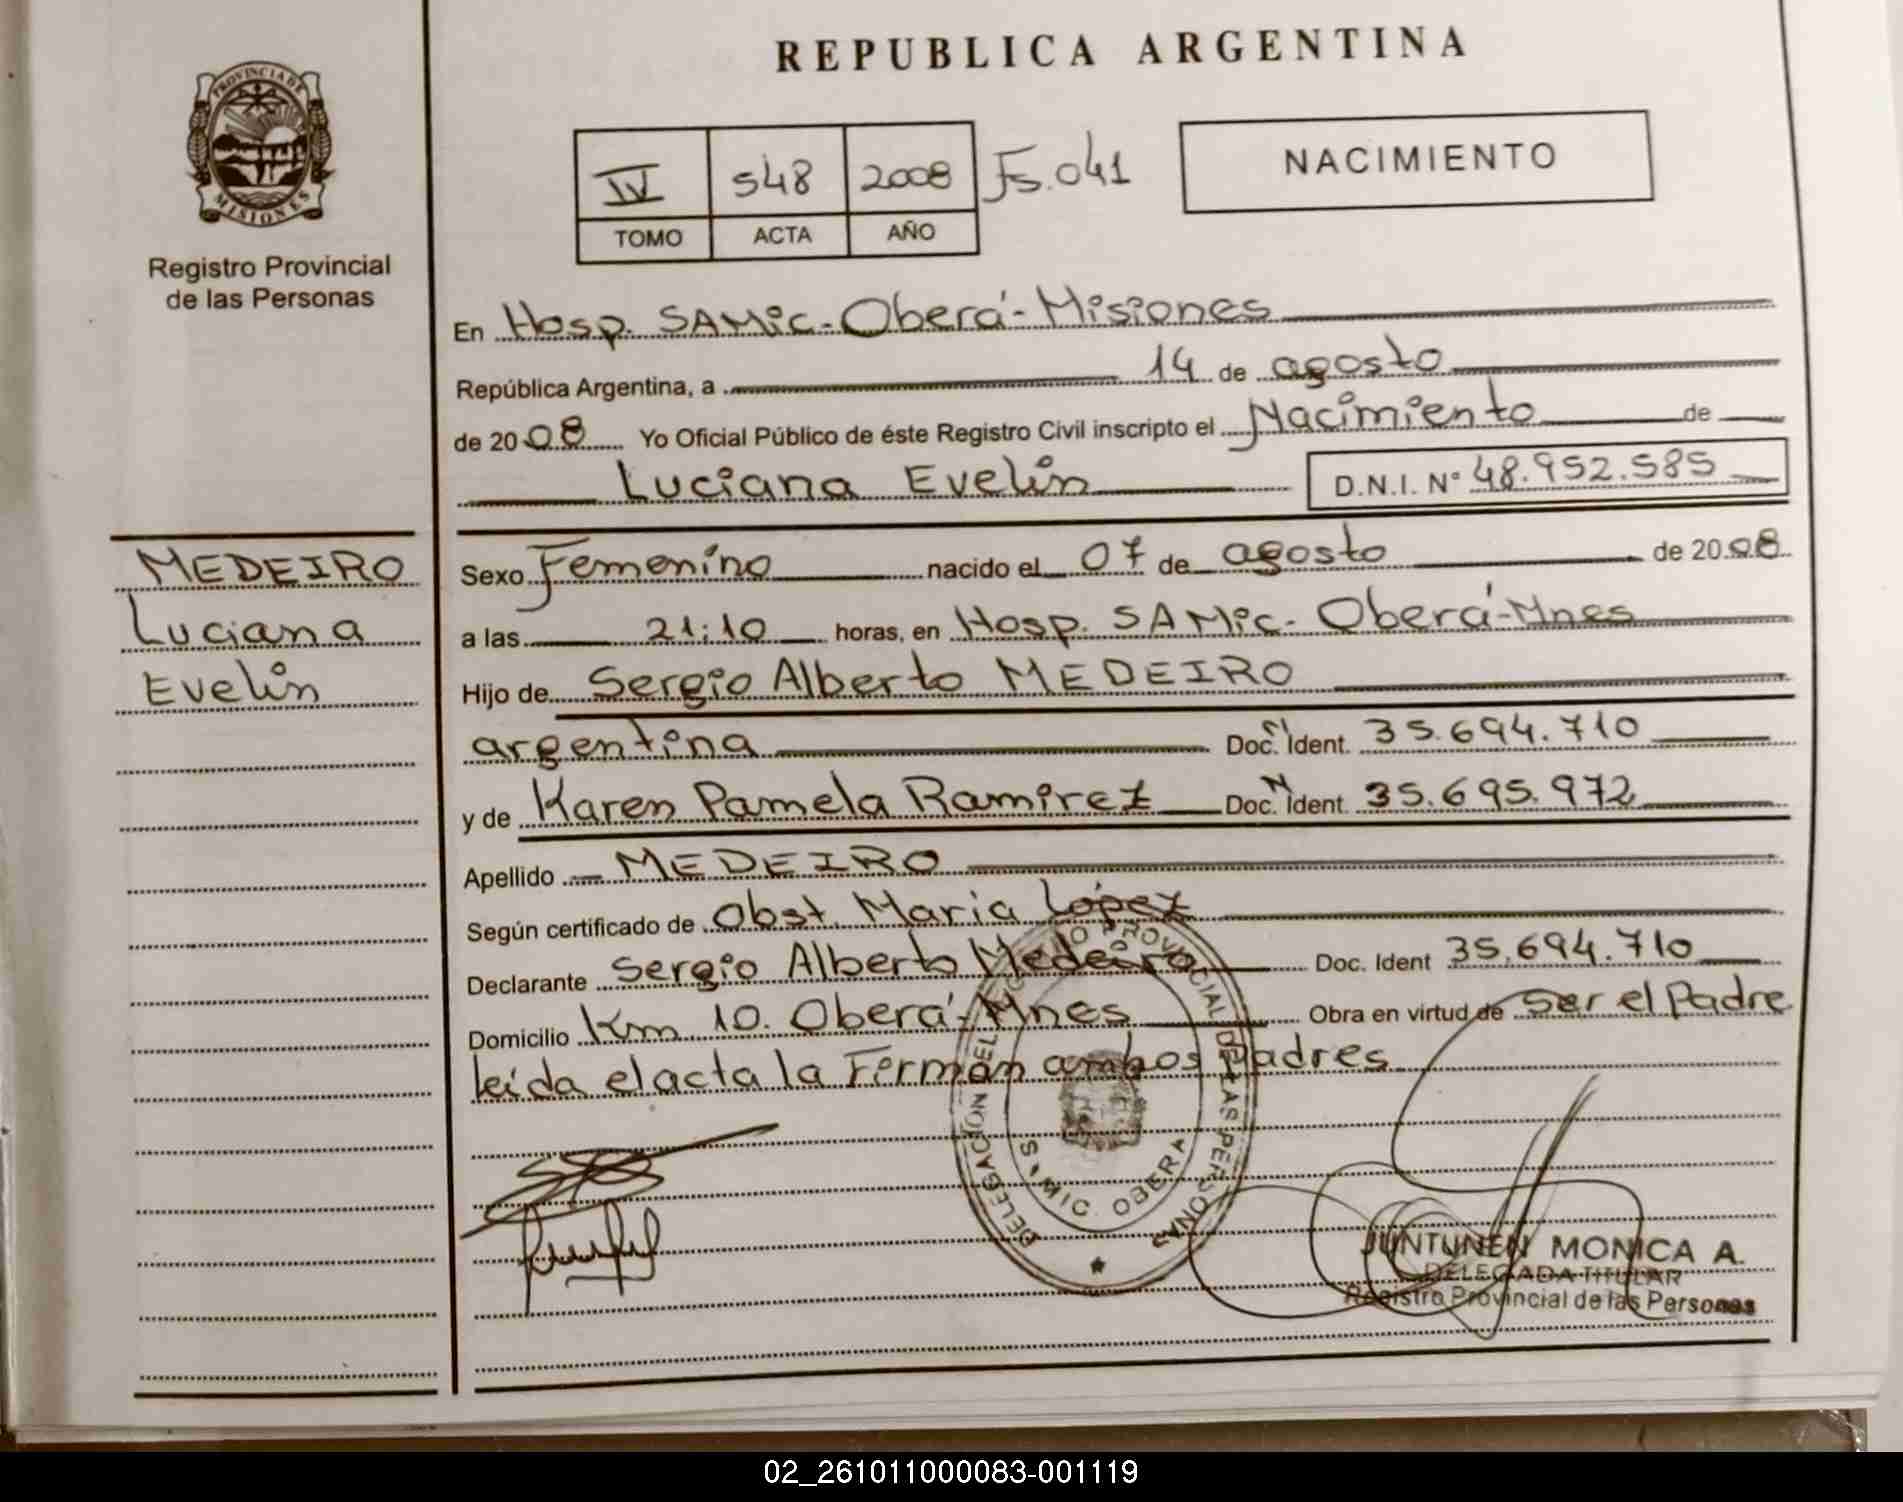 REPUBLICA ARGENTINA
PROVINCIA DE
MISIONES
Registro Provincial
de las Personas
IV 548 2008 Fs.041
TOMO ACTA AÑO
NACIMIENTO
En Hosp. SAMic-Oberá-Misiones
República Argentina, a 14 de agosto
de 2008 Yo Oficial Público de éste Registro Civil inscripto el Nacimiento de
Luciana Evelin D.N.I. N° 48.952.585
MEDEIRO
Luciana
Evelin
Sexo Femenino nacido el 07 de agosto de 2008
a las 21:10 horas, en Hosp. SAMic- Oberá-Mnes
Hijo de Sergio Alberto MEDEIRO
argentina Doc. Ident. N 35.694.710
y de Karen Pamela Ramirez Doc. Ident. N 35.695.972
Apellido MEDEIRO
Según certificado de Obst. Maria López
Declarante Sergio Alberto Medeiro Doc. Ident 35.694.710
Domicilio Km 10. Oberá-Mnes Obra en virtud de ser el Padre
leída el acta la Firman ambos Padres
DELEGACION DEL REGISTRO PROVINCIAL DE LAS PERSONAS
OBERA
JUNTUNEN MONICA A.
DELEGADA TITULAR
Registro Provincial de las Personas
02_261011000083-001119